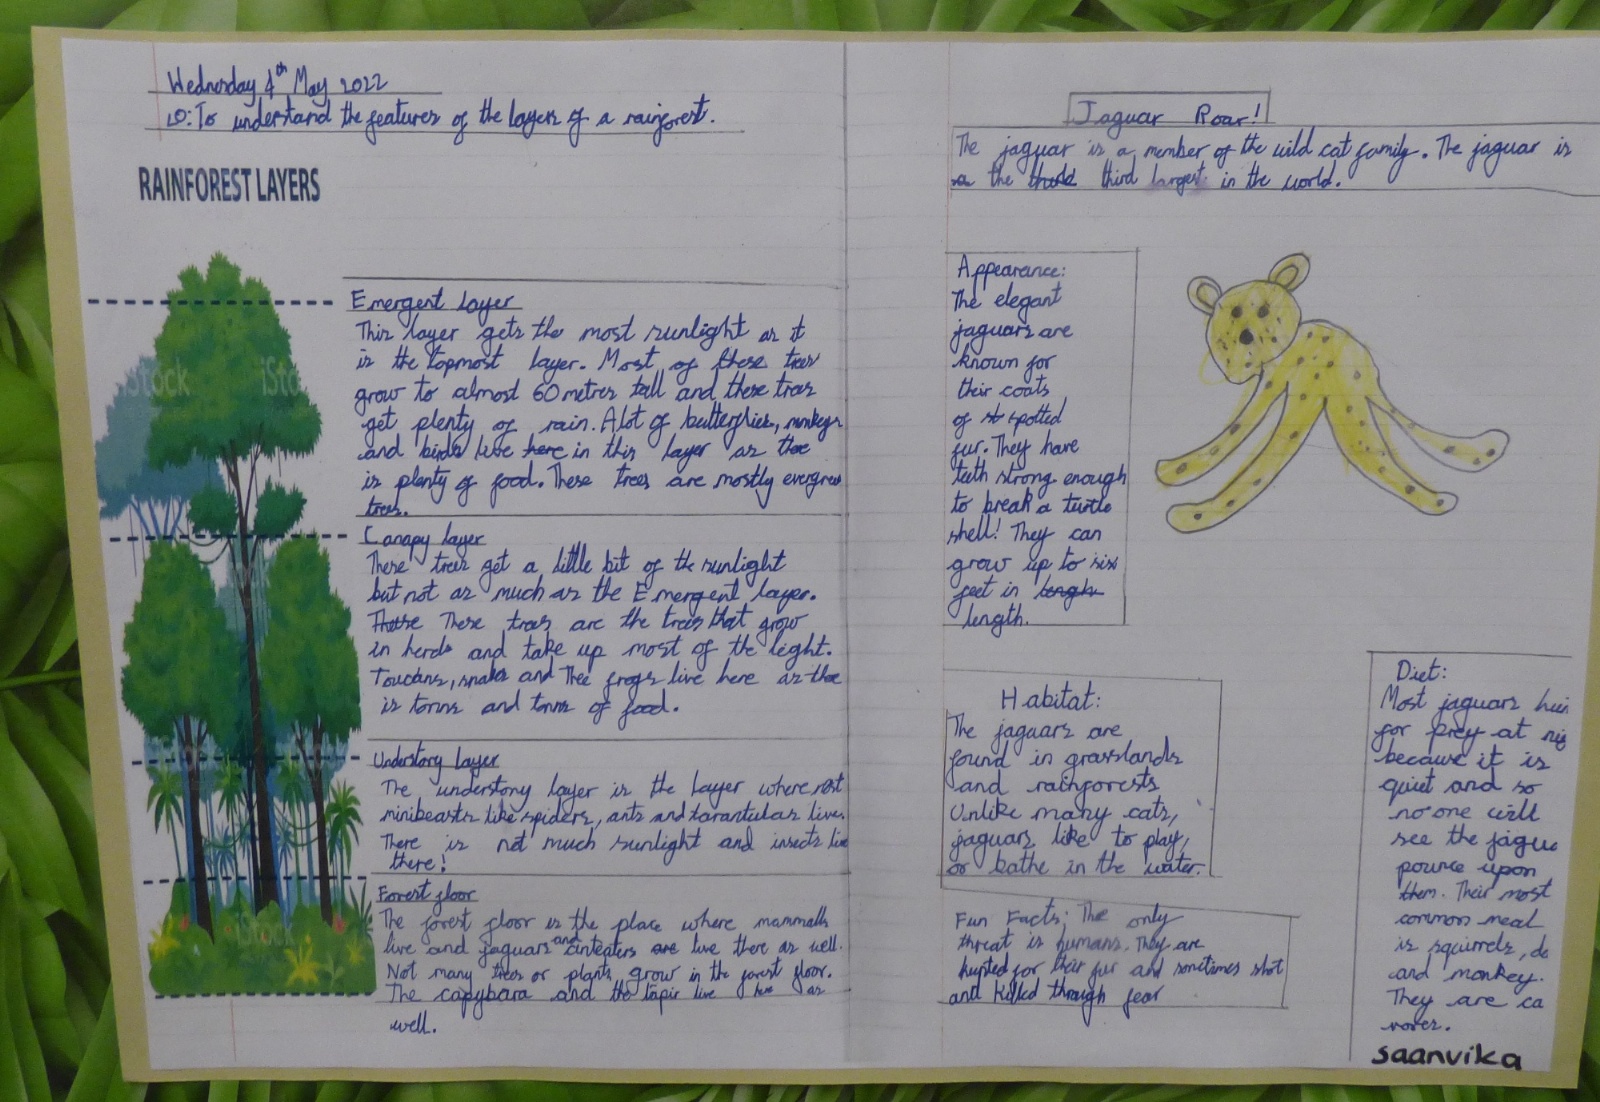 Wednesday 4th May 2022
LO: To understand the features of the layers of a rainforest.
RAINFOREST LAYERS
Emergent layer
This layer gets the most sunlight as it
is the topmost layer. Most of these trees
grow to almost 60 metres tall and these trees
get plenty of rain. A lot of butterflies, monkeys
and birds live here in this layer as there
is plenty of food. These trees are mostly evergreen
trees.
Canopy layer
These trees get a little bit of the sunlight
but not as much as the Emergent layer.
These trees are the trees that grow
in herds and take up most of the light.
Toucans, snakes and Tree frogs live here as there
is tonns and tonns of food.
Understory layer
The understony layer is the layer where most
minibeasts like spiders, ants and tarantulas live.
There is not much sunlight and insects live
there!
Forest floor
The forest floor is the place where mammals
live and jaguars and anteaters are live there as well.
Not many trees or plants grow in the forest floor.
The capybara and the tapir live here as
well.
Jaguar Roar!
The jaguar is a member of the wild cat family. The jaguar is
a the third third largest in the world.
Appearance:
The elegant
jaguars are
known for
their coats
of spotted
fur. They have
teeth strong enough
to break a turtle
shell! They can
grow up to six
feet in lengh
length.
Habitat:
The jaguars are
found in grasslands
and rainforests
Unlike many cats,
jaguars like to play,
or bathe in the water.
Fun Facts: The only
threat is humans. They are
hunted for their fur and somtimes shot
and killed through fear
Diet:
Most jaguars hun
for prey at nig
because it is
quiet and so
no one will
see the jagu
pounce upon
them. Their most
common meal
is squirrels, de
and monkey.
They are ca
novers.
saanvika
iStock
iSto
iStock